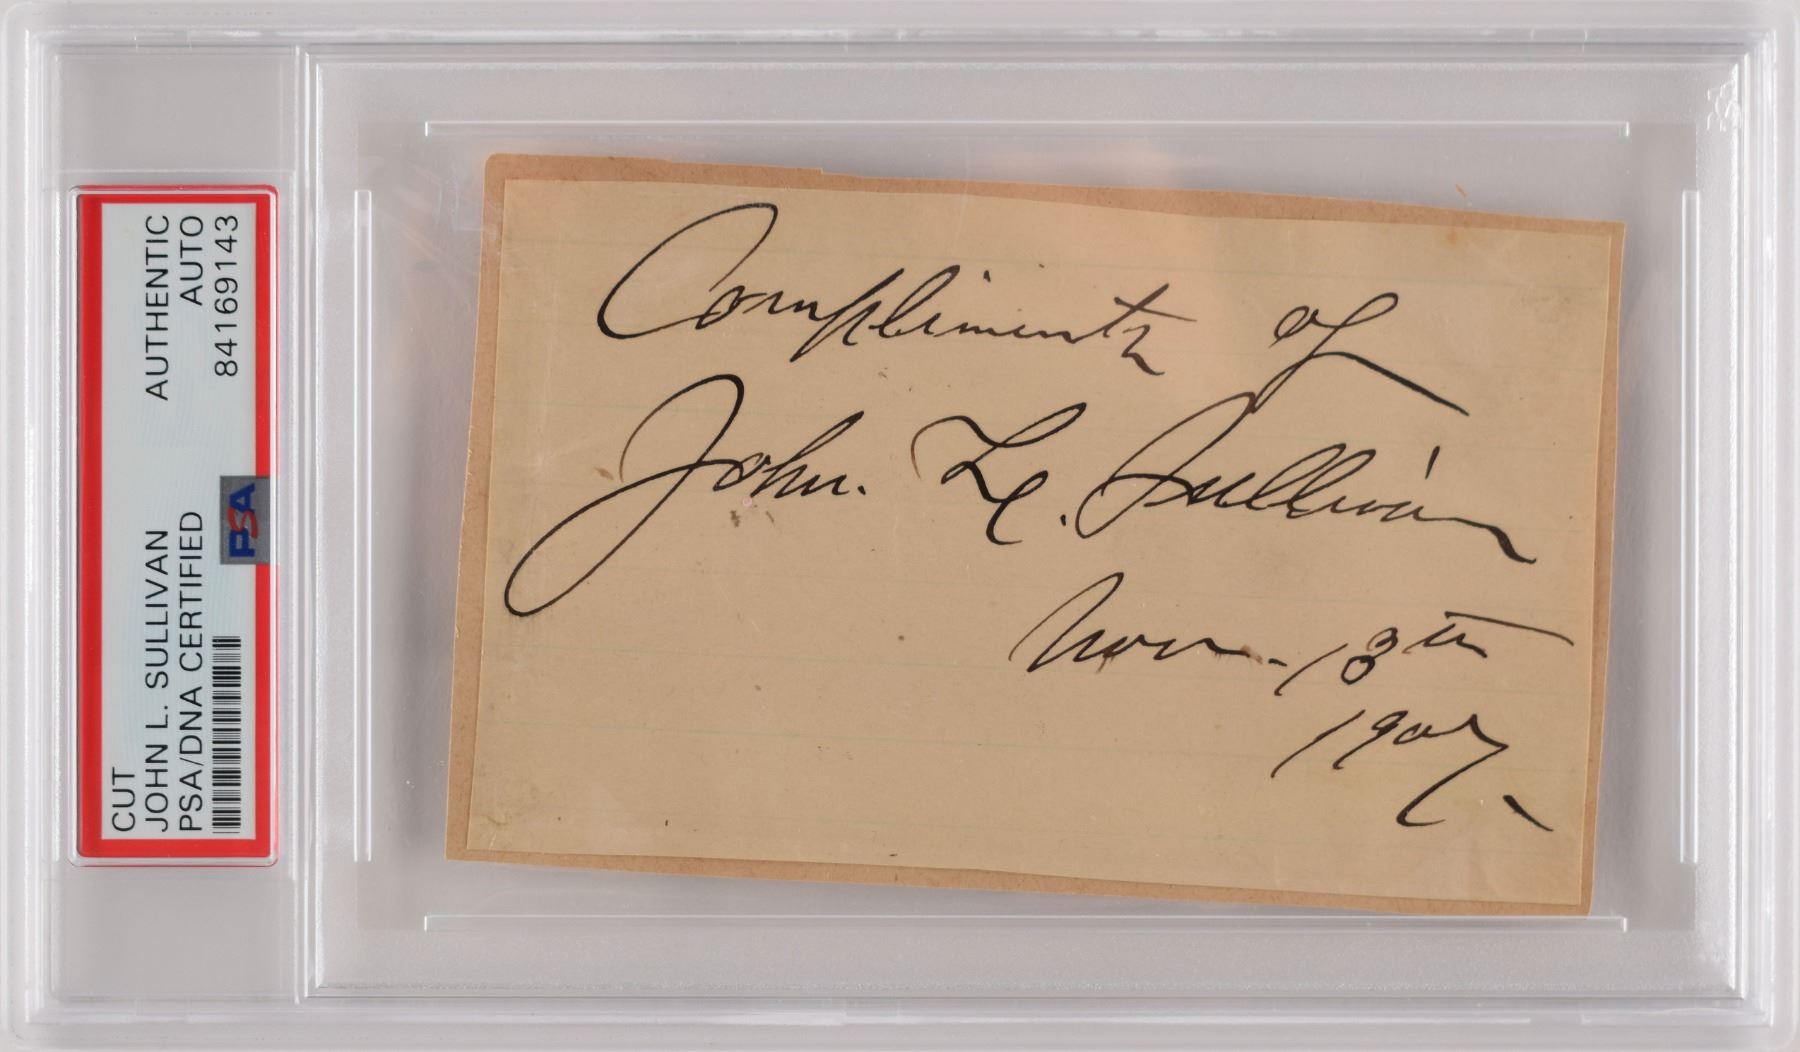 CUT AUTHENTIC
JOHN L. SULLIVAN AUTO
PSA/DNA CERTIFIED 84169143
PSA
Compliments of
John. L. Sullivan
Nov. 13th
1907.